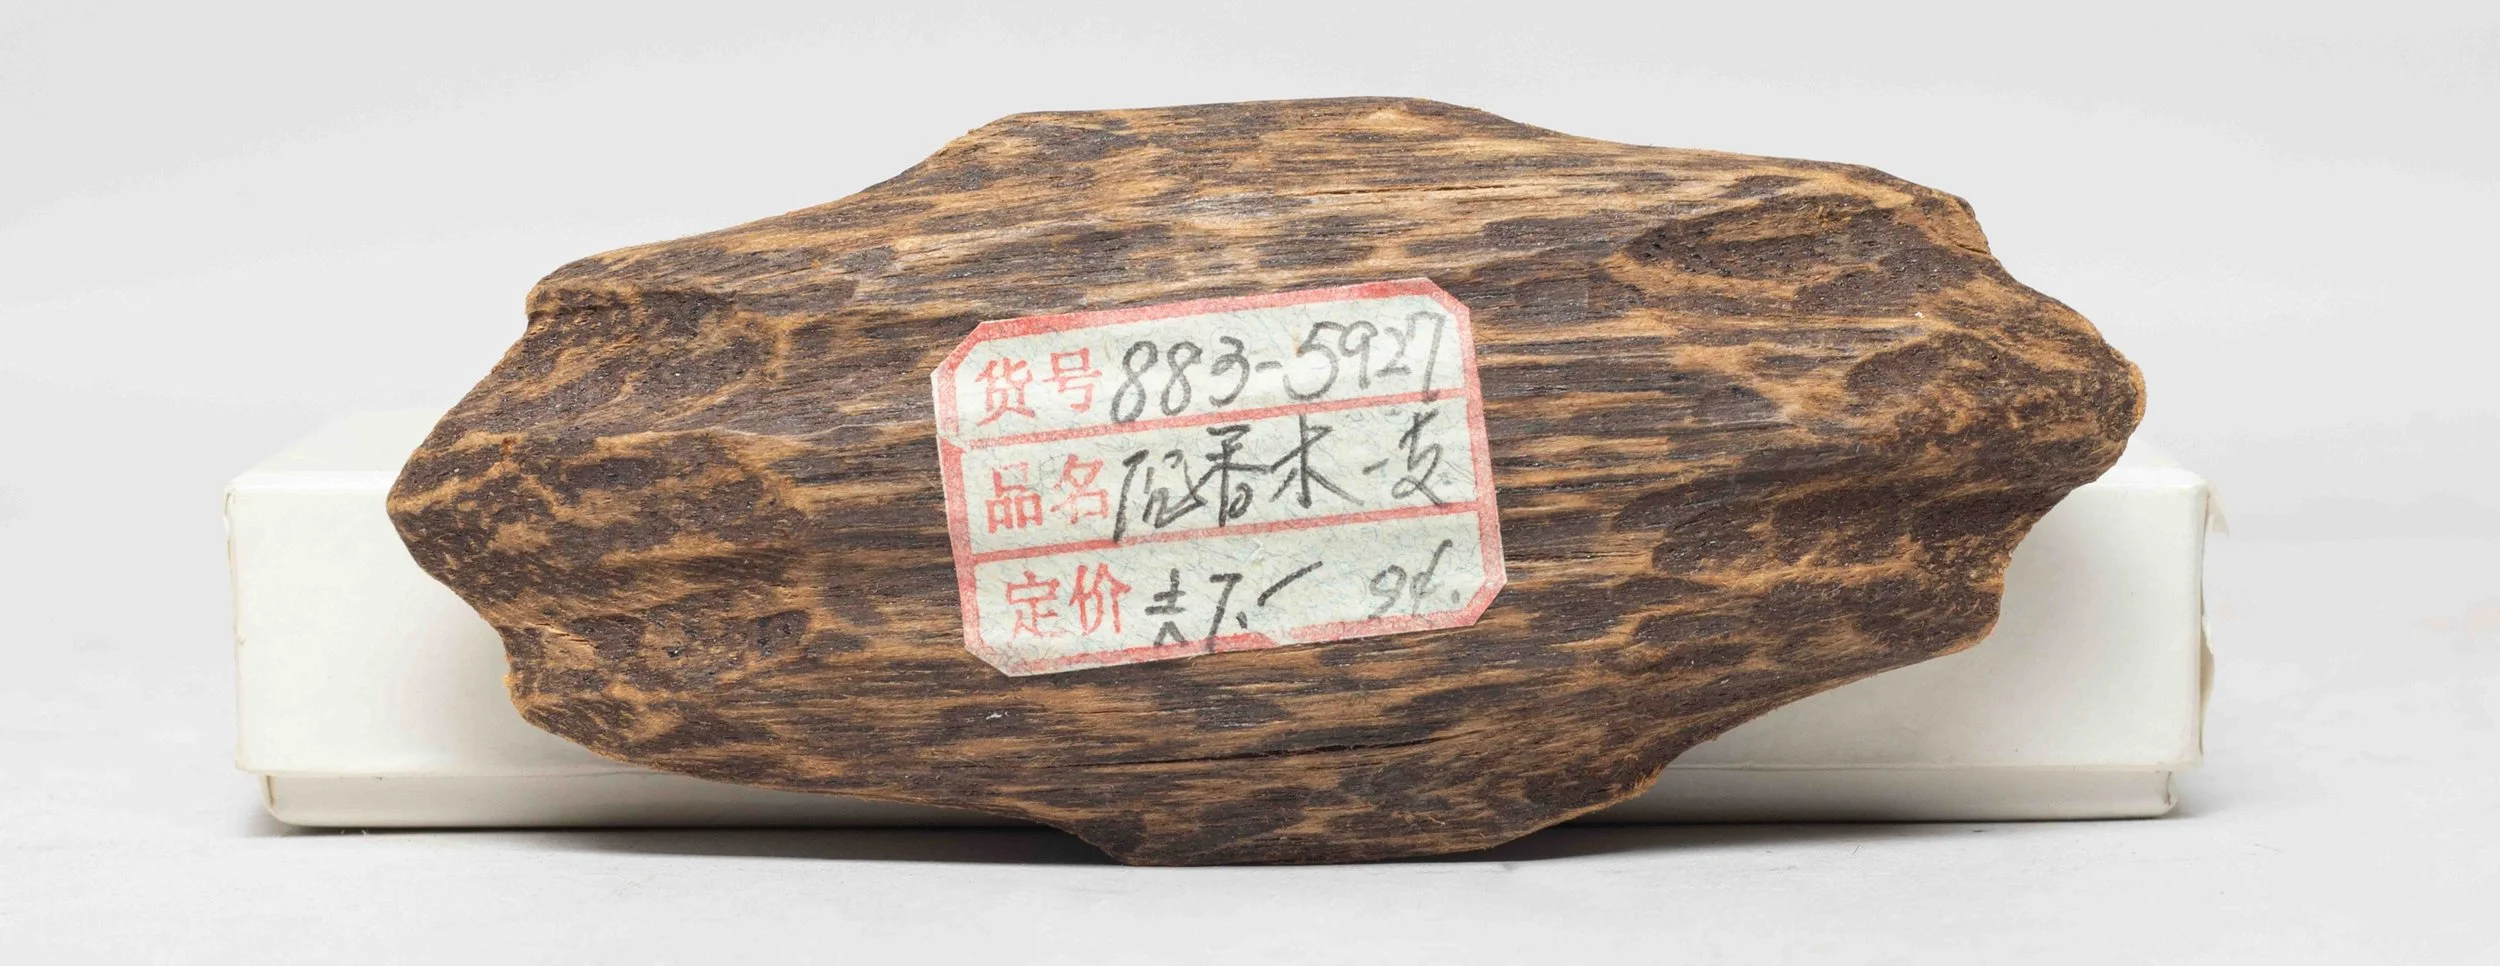 货号 883-5927
品名 香木一支
定价 7.- 84.